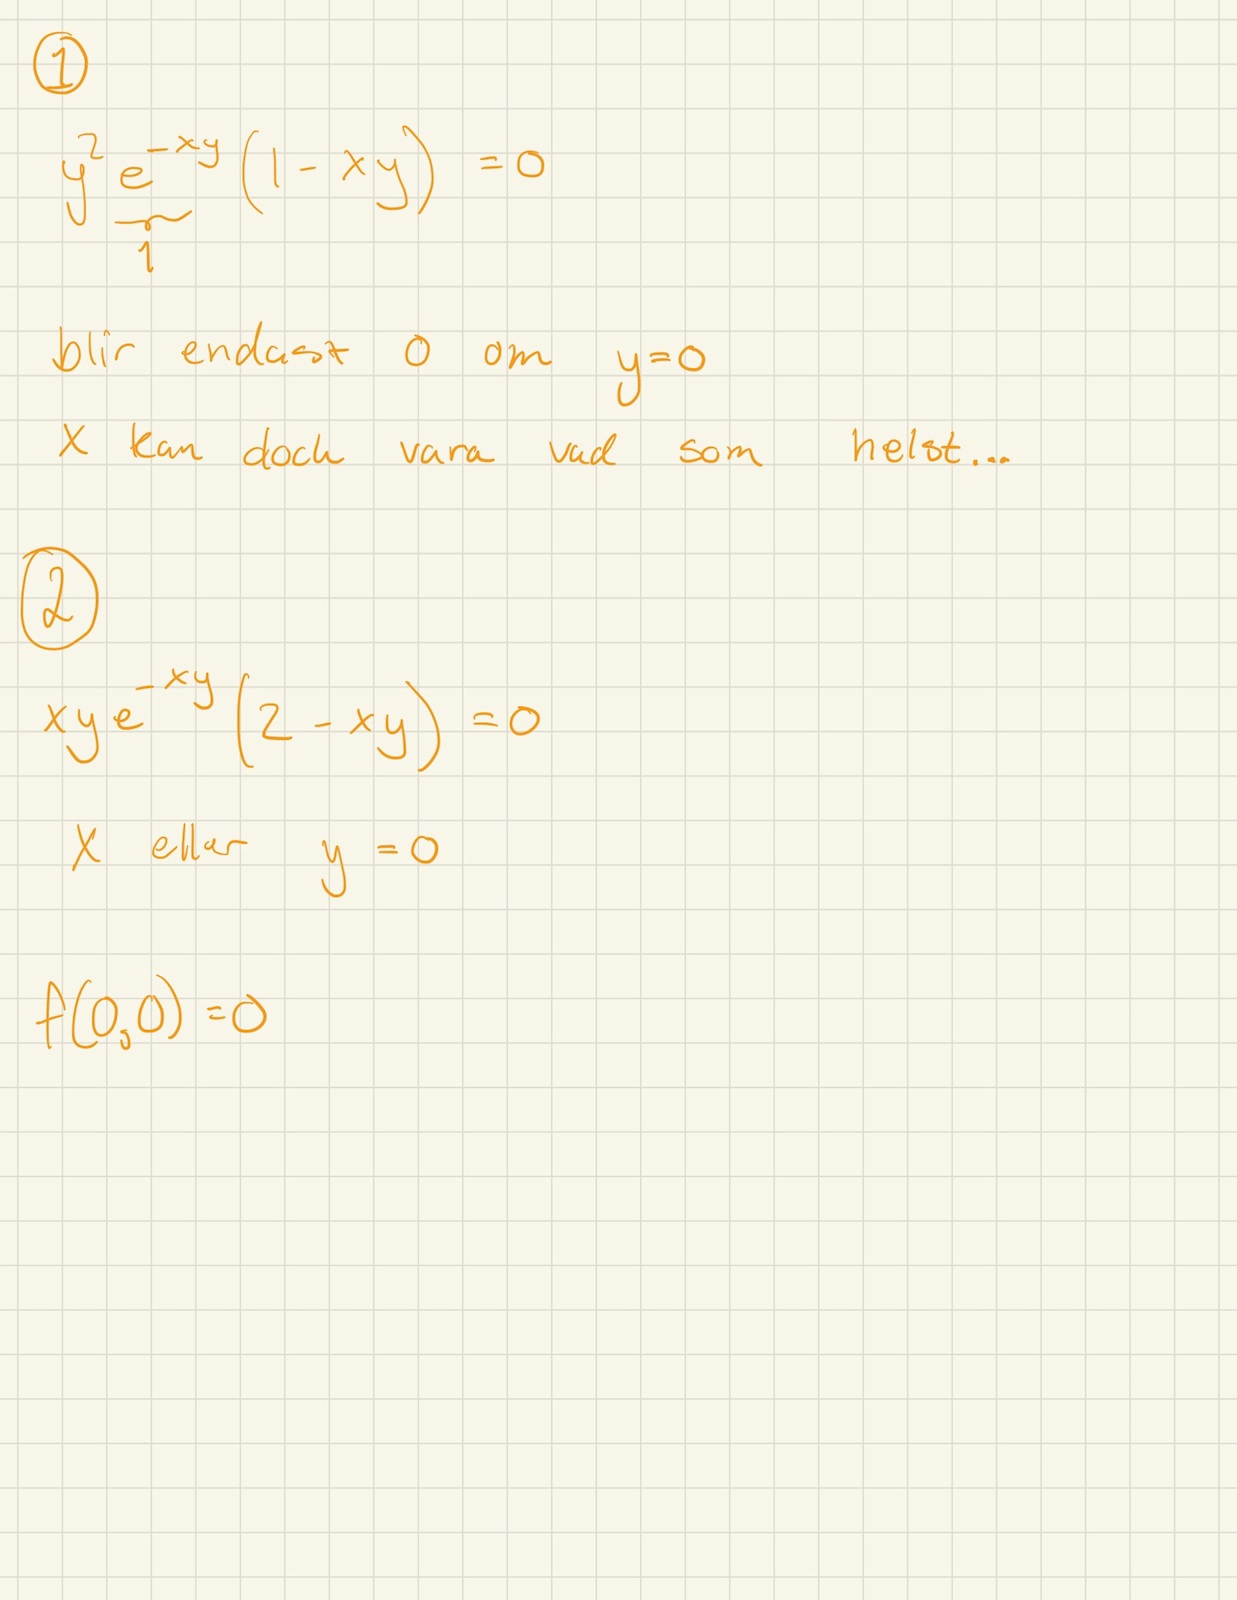 1
y² e^{-xy} (1 - xy) = 0
1
blir endast 0 om y=0
X kan doch vara vad som helst...
2
xye^{-xy} (2 - xy) = 0
X ellar y = 0
f(0,0) = 0